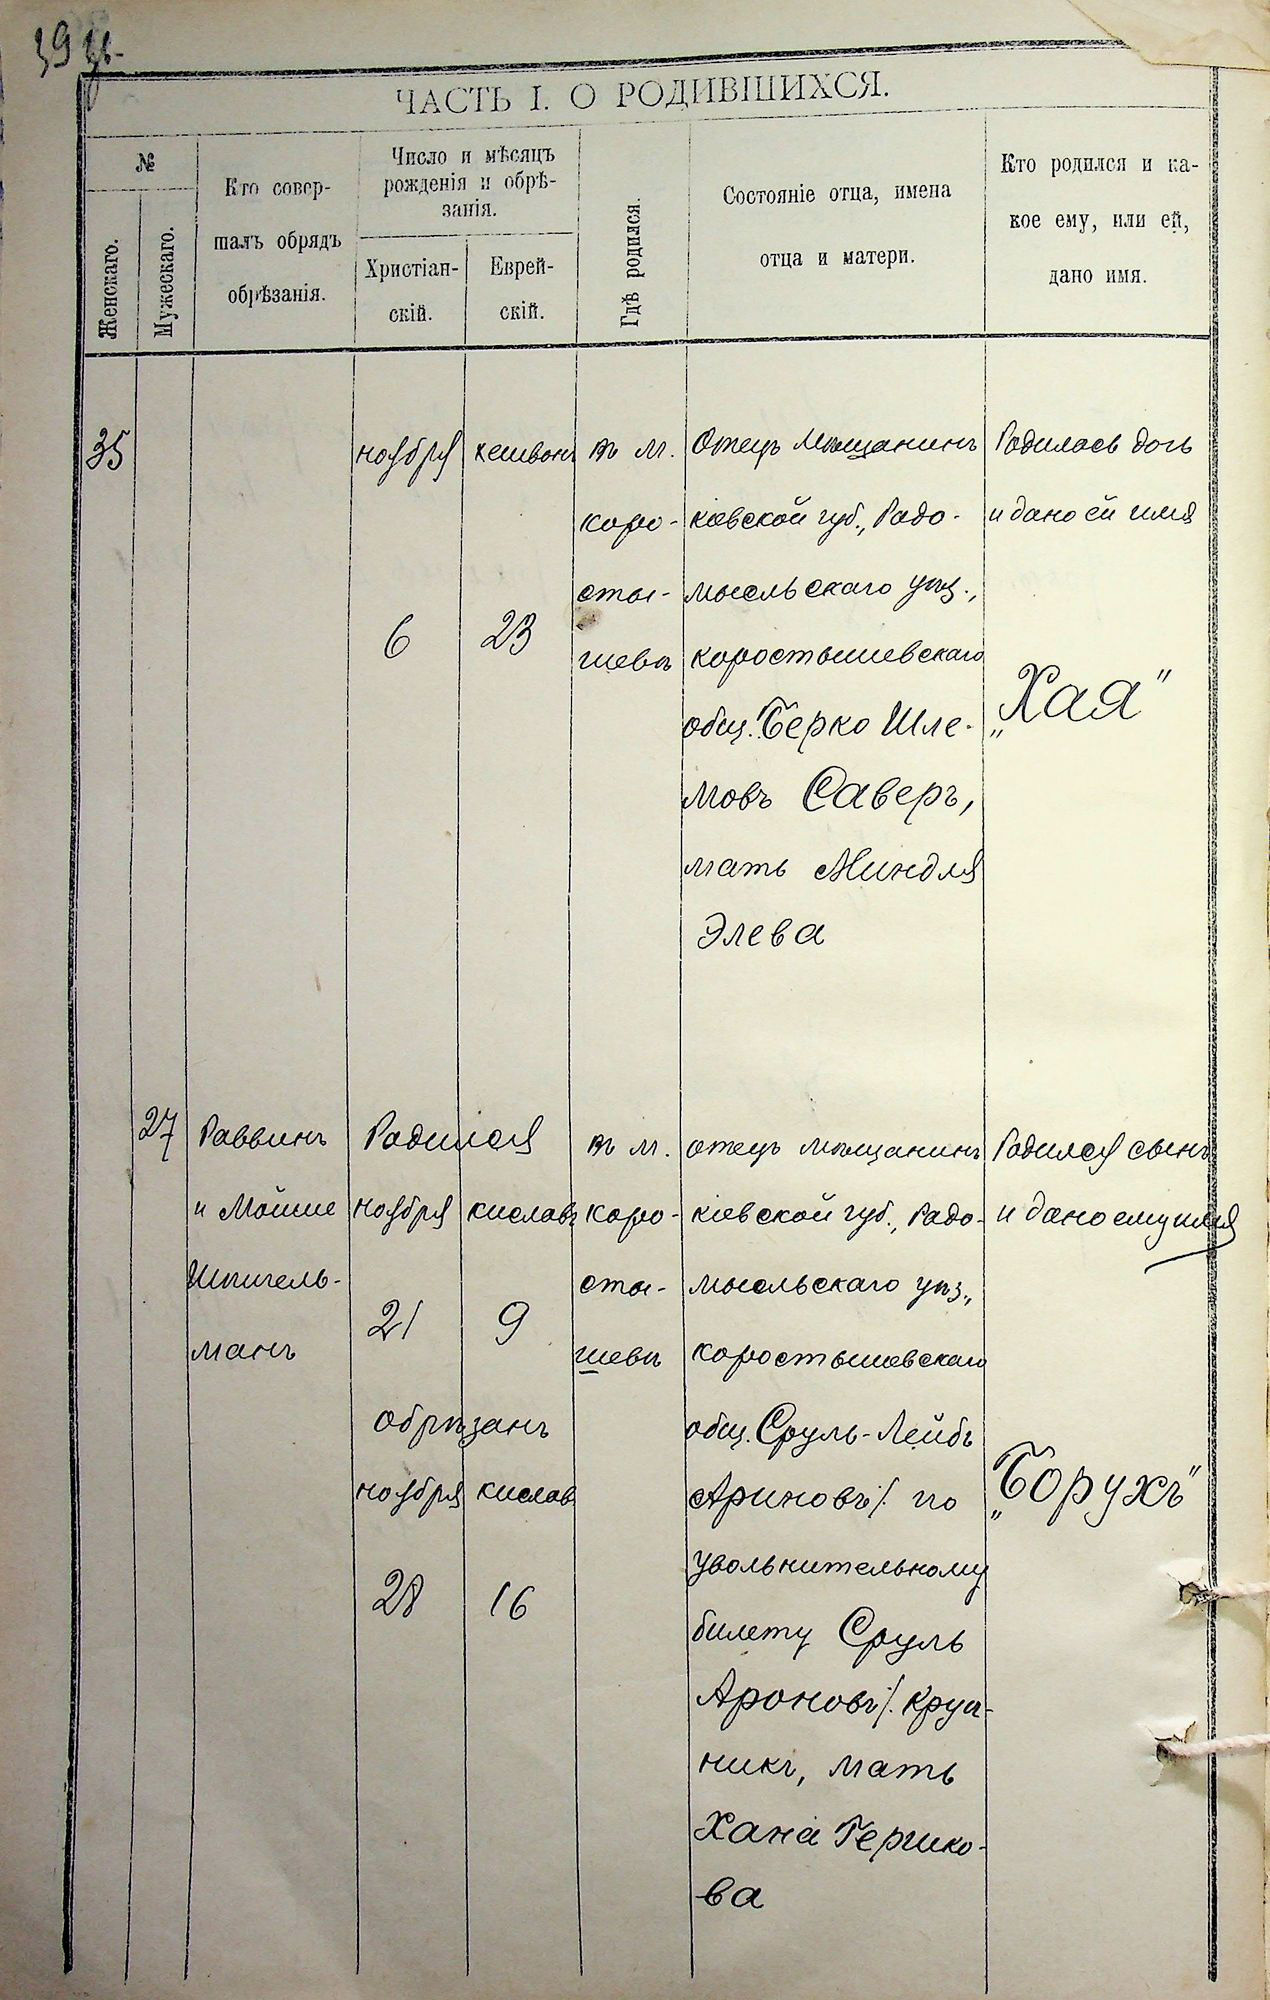 ЧАСТЬ I. О РОДИВШИХСЯ.
№
Женскаго.
Мужескаго.
Кто совер-
шалъ обрядъ
обрѣзанія.
Число и мѣсяцъ
рожденія и обрѣ-
занія.
Христіан-
скій.
Еврей-
скій.
Гдѣ родился.
Состояніе отца, имена
отца и матери.
Кто родился и ка-
кое ему, или ей,
дано имя.
35
ноября
6
хешвонъ
23
въ м.
Коро-
сты-
шевѣ
Отецъ мѣщанинъ
кіевской губ., Радо-
мысльскаго уѣз.,
коростышевскаго
общ. Берко Шле-
мовъ Саверъ,
мать Миндля
Элева
Родилась дочь
и дано ей имя
„Хая"
27
Раввинъ
и Мойше
Шпигель-
манъ
Родился
ноября киславъ
21 9
обрѣзанъ
ноября киславъ
28 16
въ м.
Коро-
сты-
шевѣ
отецъ мѣщанинъ
кіевской губ., Радо-
мысльскаго уѣз.,
коростышевскаго
общ. Сруль-Лейбъ
Ариновъ /: по
увольнительному
билету Сруль
Ароновъ /: Круп-
никъ, мать
Хана Гершко-
ва
Родился сынъ
и дано ему имя
„Борухъ"